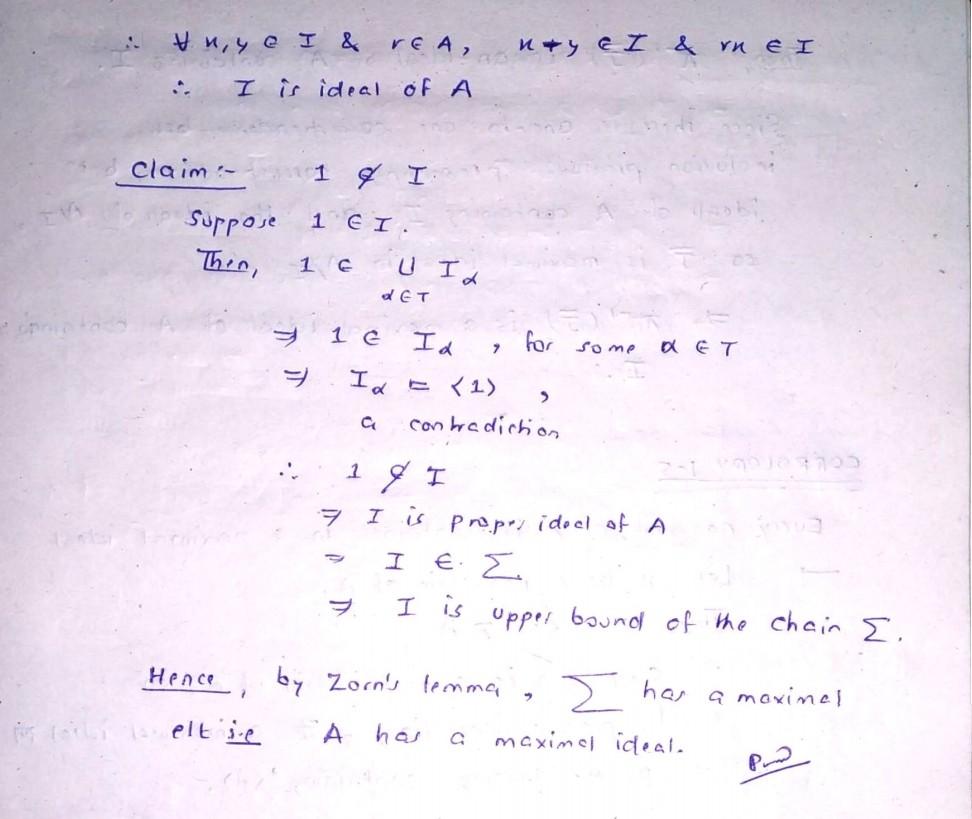 ∴ ∀ x, y ∈ I & r ∈ A, x+y ∈ I & rx ∈ I
∴ I is ideal of A
Claim :- 1 ∉ I
Suppose 1 ∈ I.
Then, 1 ∈ ∪ I_α
α ∈ T
⇒ 1 ∈ I_α , for some α ∈ T
⇒ I_α = <1> ,
a contradiction
∴ 1 ∉ I
⇒ I is proper ideal of A
⇒ I ∈ Σ
⇒ I is upper bound of the chain Σ.
Hence, by Zorn's lemma, Σ has a maximal
elt i.e A has a maximal ideal.